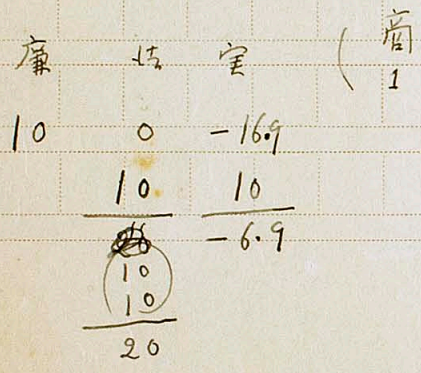 廉 法 实 ( 商
1
10 0 -16.9
10 10
-6.9
10
10
20